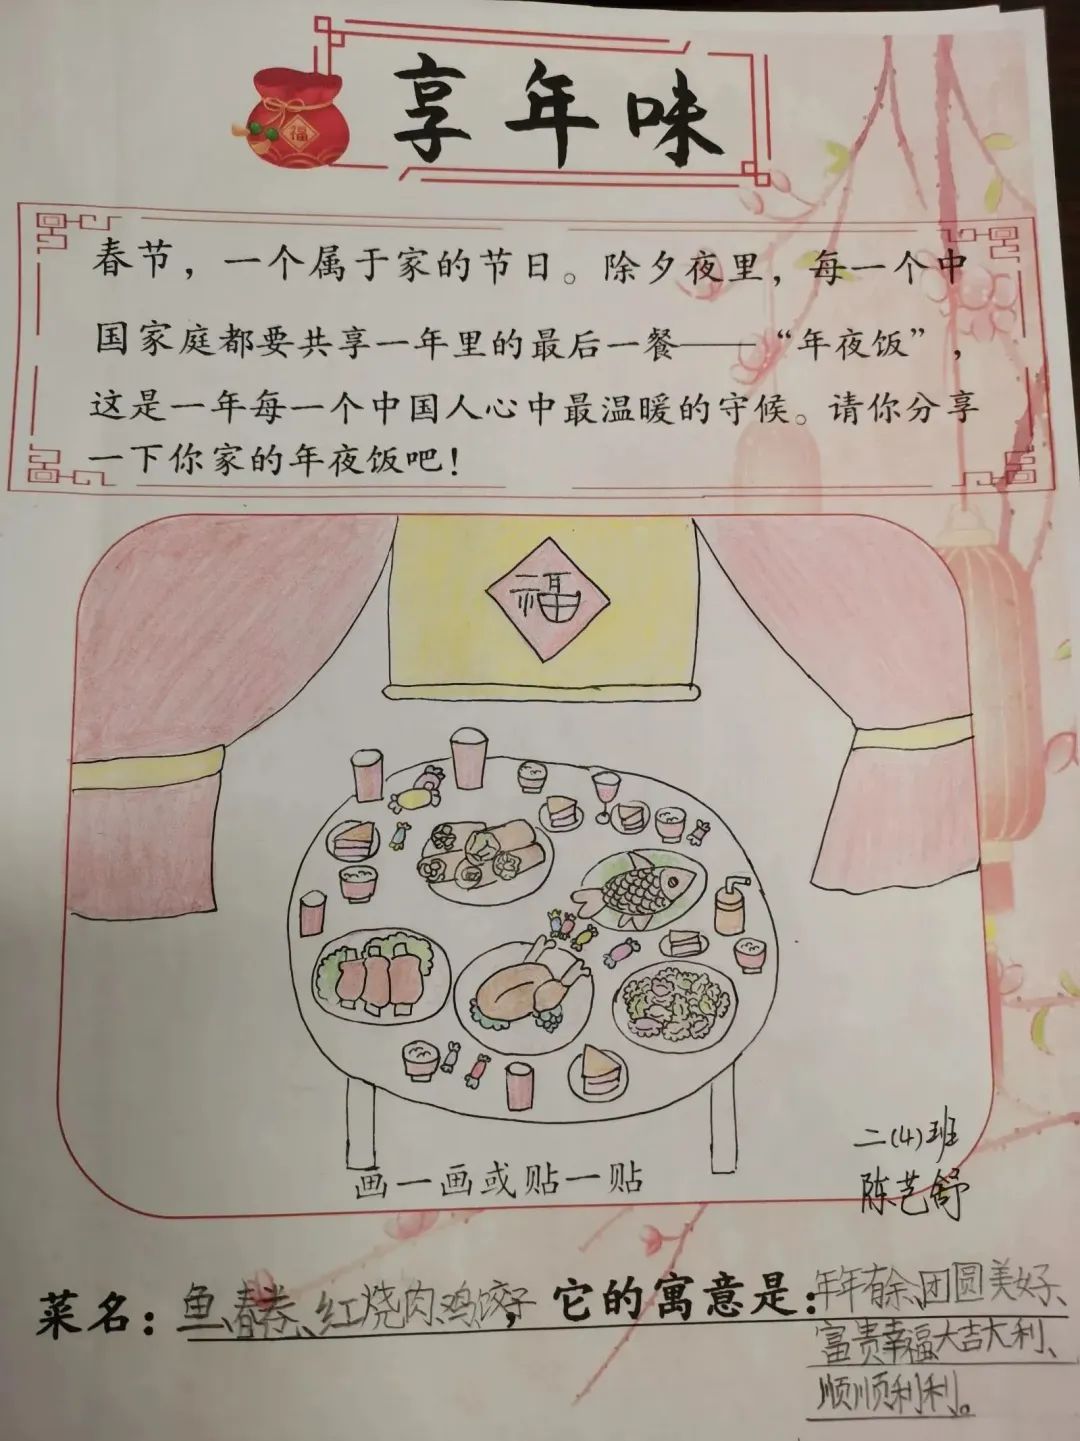 福
享年味
春节，一个属于家的节日。除夕夜里，每一个中
国家庭都要共享一年里的最后一餐——“年夜饭”，
这是一年每一个中国人心中最温暖的守候。请你分享
一下你家的年夜饭吧！
福
二(4)班
陈艺舒
画一画或贴一贴
菜名：鱼、春卷、红烧肉、鸡、饺子，它的寓意是：年年有余、团圆美好、
富贵幸福、大吉大利、
顺顺利利。